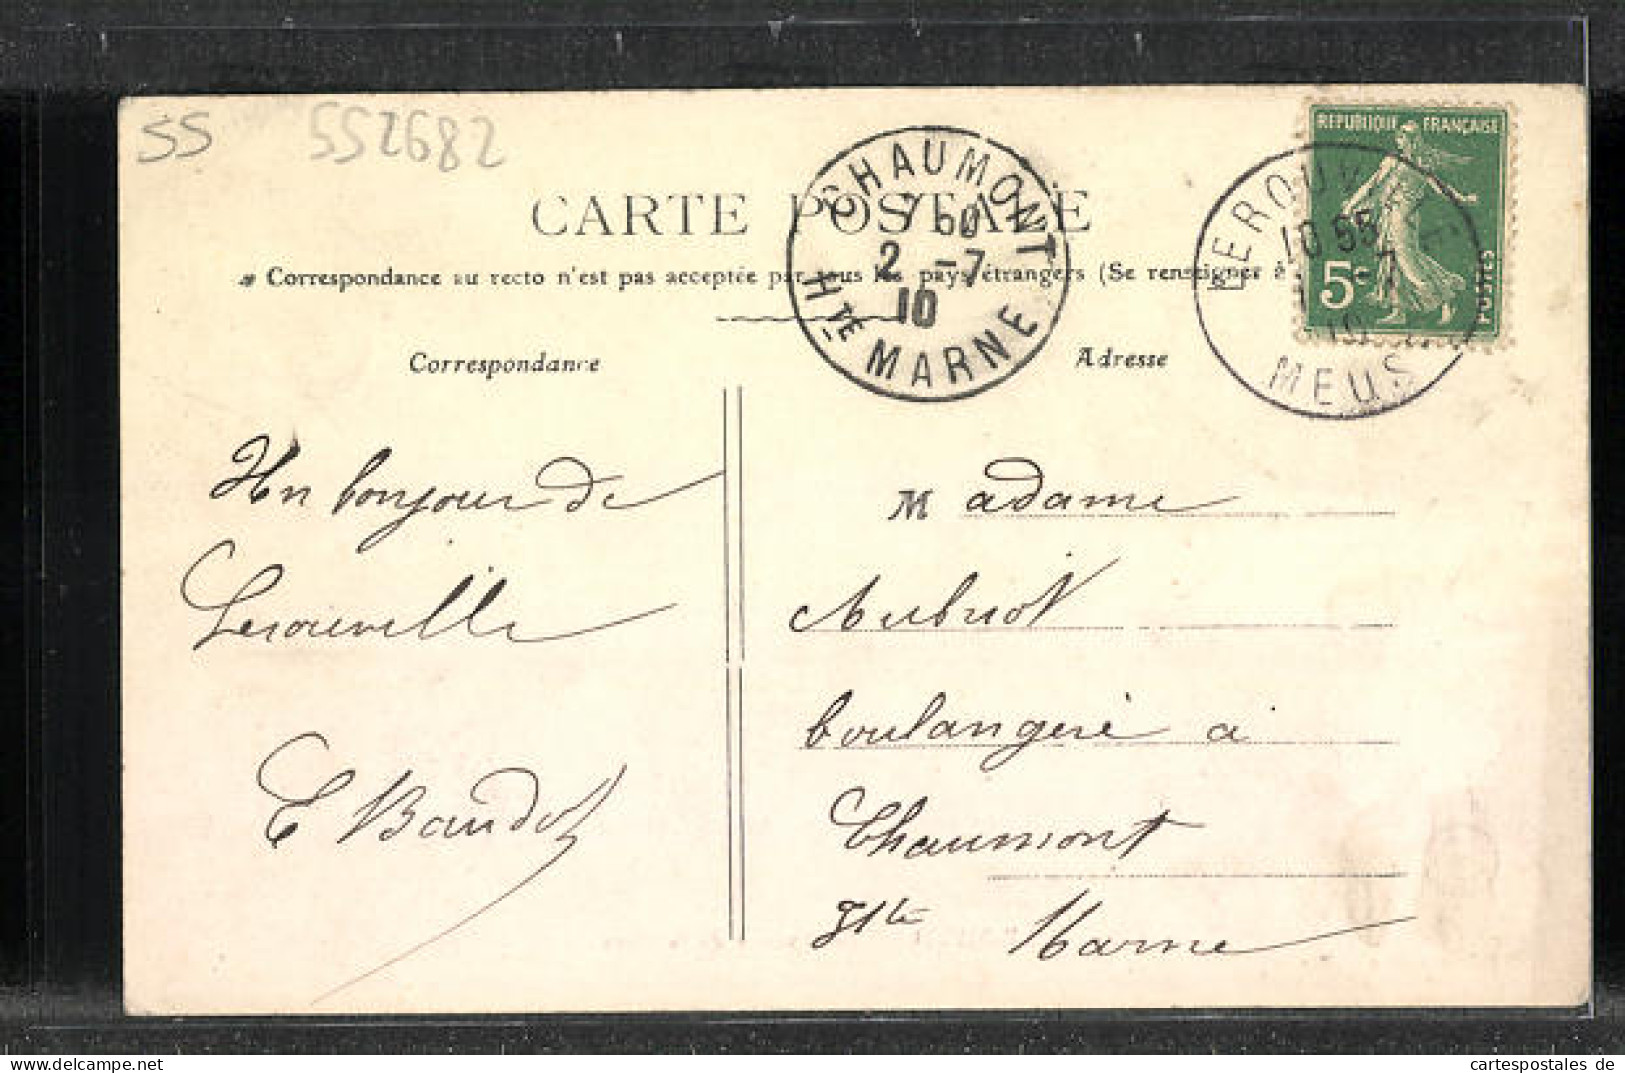 55 552682
REPUBLIQUE FRANÇAISE
5c
POSTES
LEROUVILLE
10 55
-7
10
MEUSE
CHAUMONT
7 50
2 -7
10
Hte MARNE
CARTE POSTALE
Correspondance au recto n'est pas acceptée par tous les pays étrangers (Se renseigner à
Correspondance
Adresse
Un bonjour de
Lerouville
E Baudot
Madame
Aubriot
boulangère à
Chaumont
Hte Marne
Visit my Delcampe store
cartespostales de